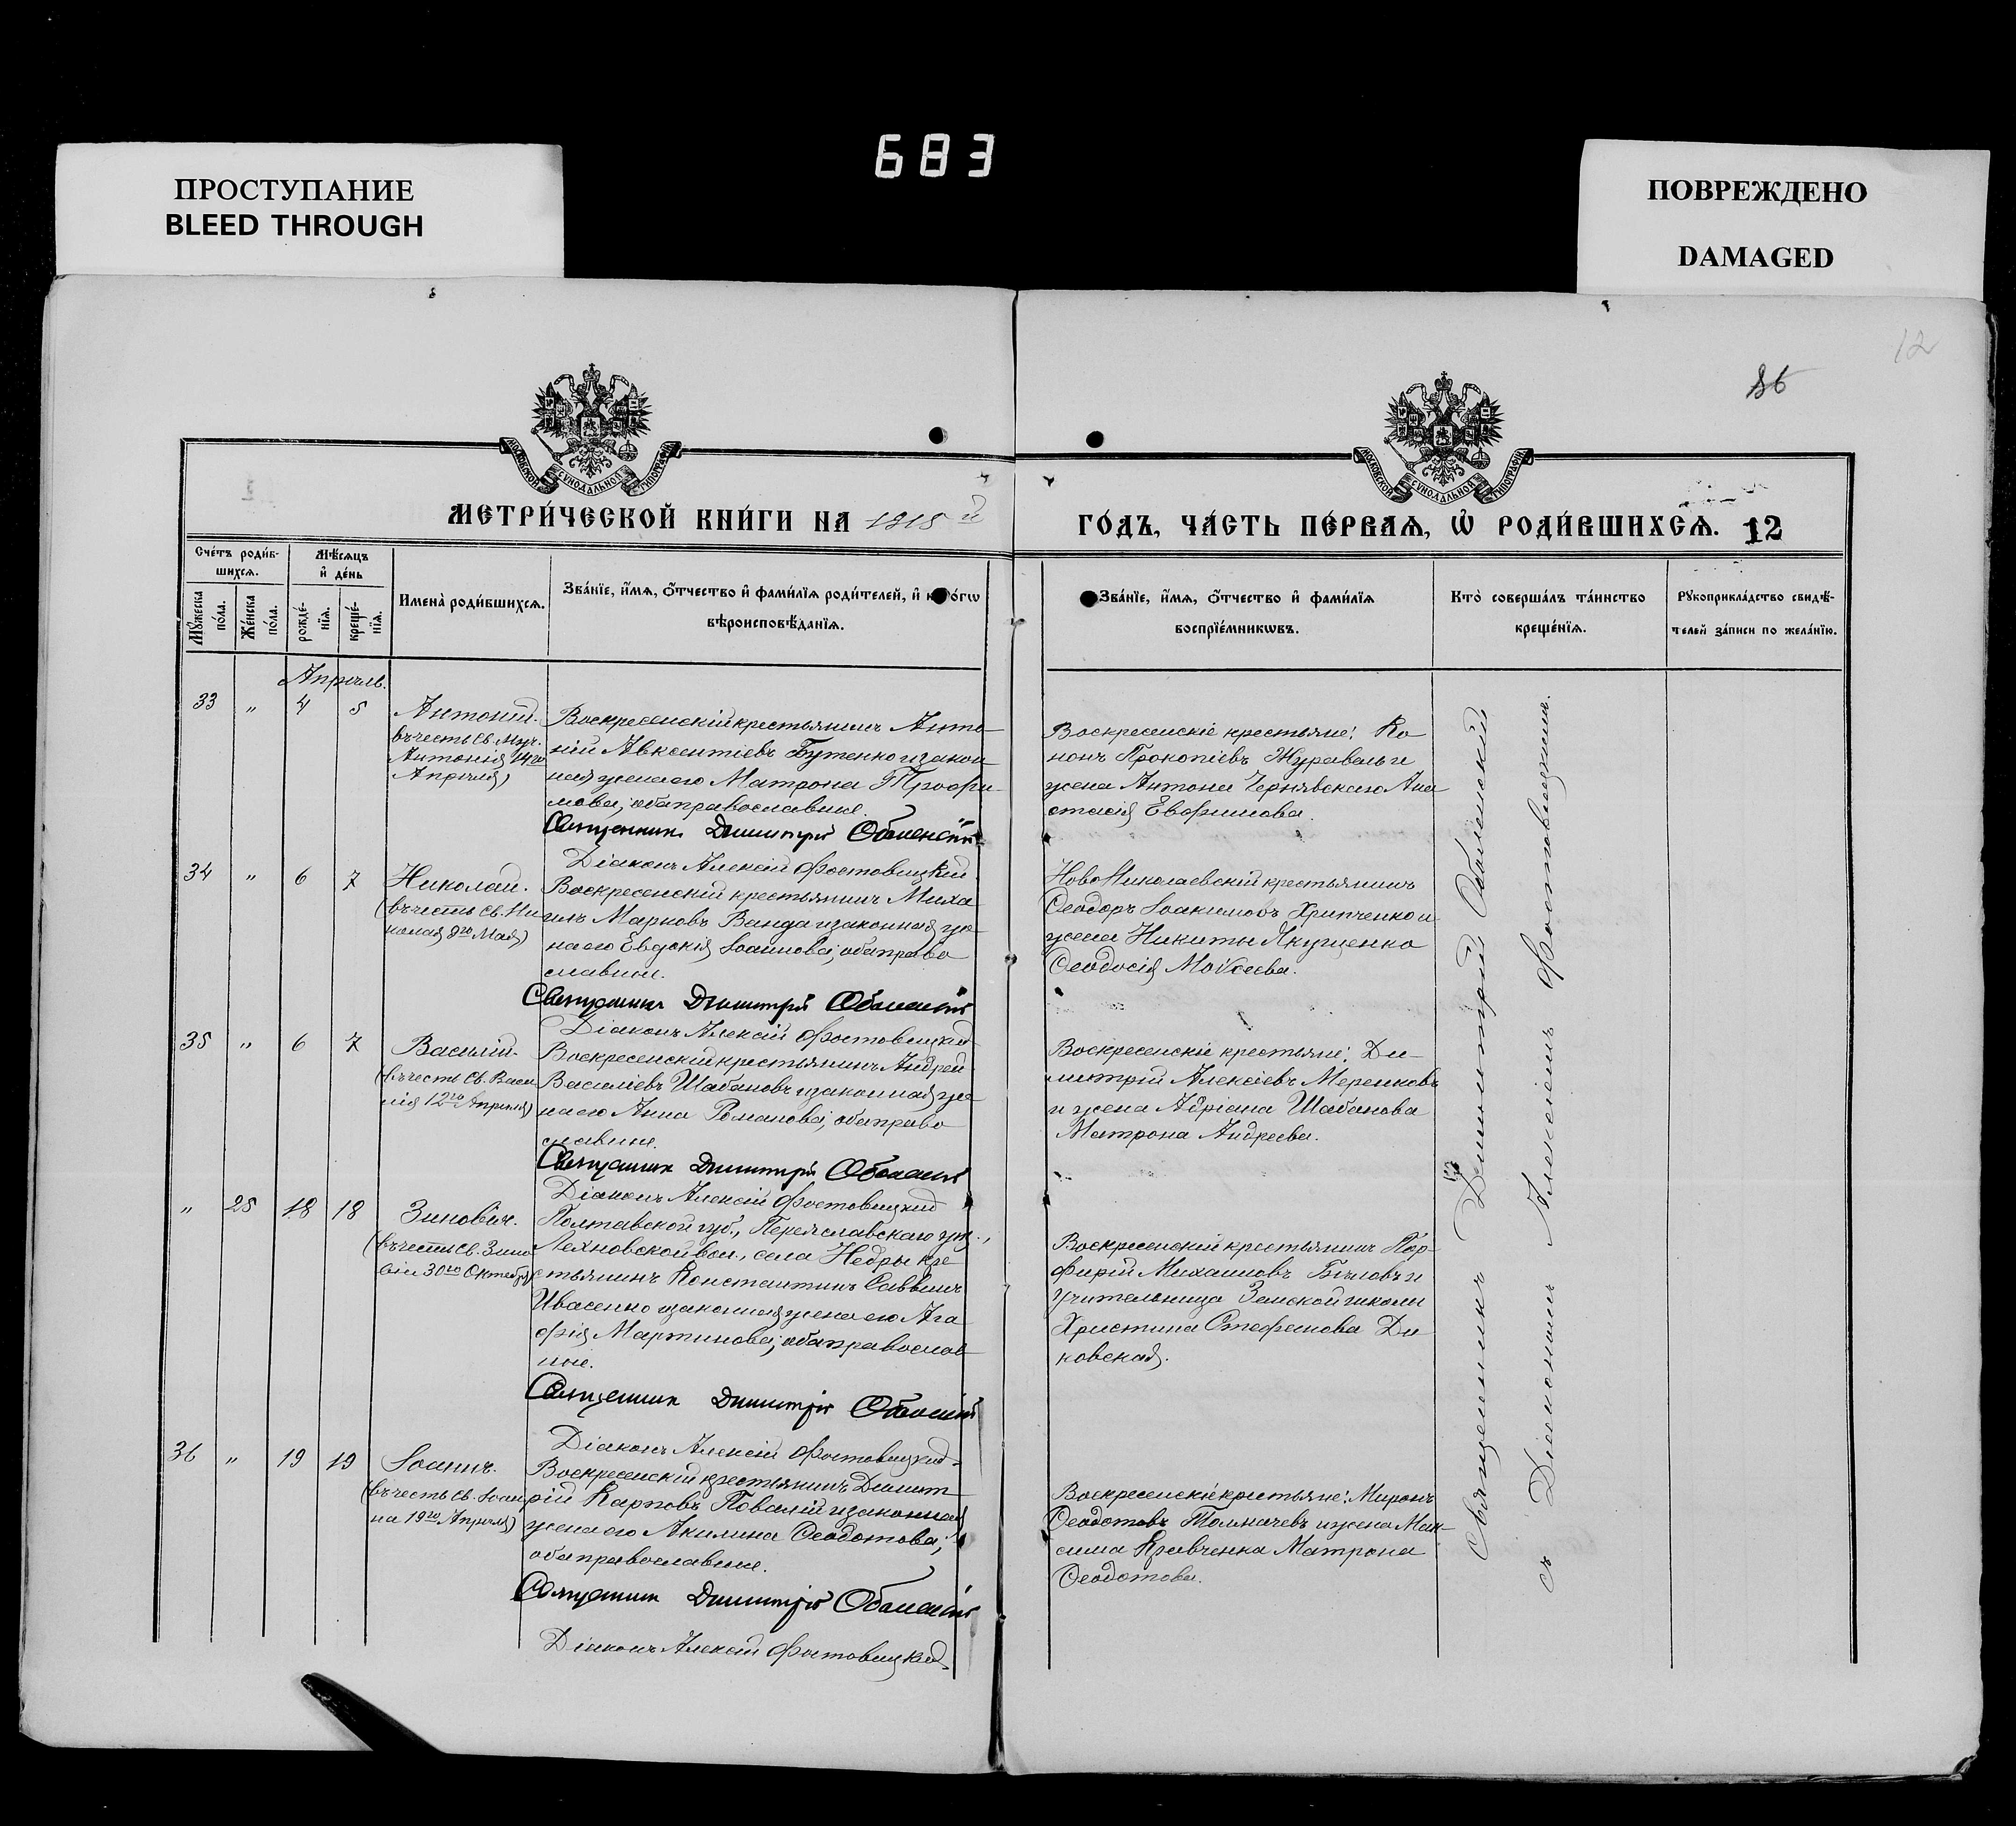 683
ПРОСТУПАНИЕ
BLEED THROUGH
ПОВРЕЖДЕНО
DAMAGED
12
МОСКОВСКОЙ СѴНОДАЛЬНОЙ ТИПОГРАФІИ
МОСКОВСКОЙ СѴНОДАЛЬНОЙ ТИПОГРАФІИ
МЕТРИ́ЧЕСКОЙ КНИ́ГИ НА 1915й
ГО́ДЪ, ЧА́СТЬ ПЕ́РВАѦ, Ѡ҆ РОДИ́ВШИХСѦ. 12
Сче́тъ роди́в-
шихсѧ.
Мѣ́сѧцъ
и҆ де́нь
Мꙋ́жеска
по́ла.
Же́нска
по́ла.
рожде́-
нїѧ.
креще́-
нїѧ.
Имена̀ роди́вшихсѧ.
Зва́нїе, и҆́мѧ, ѻ҆́тчество и҆ фами́лїѧ роди́телей, и҆
вѣроисповѣ́данїѧ.
Зва́нїе, и҆́мѧ, ѻ҆́тчество и҆ фами́лїѧ
воспрїе́мникωвъ.
Кто̀ соверша́лъ та́инство
креще́нїѧ.
Рꙋкоприкла́дство свидѣ́-
телей за́писи по жела́нїю.
Апрѣль.
33 " 4 5
Антоній.
(въ честь Св. Муч.
Антонія 14го
Апрѣля)
Воскресенскій крестьянинъ Анто-
ній Авксентіевъ Бутенко и закон-
ная жена его Матрона Трофи-
мова; оба православные.
Священникъ Димитрій Оболенскій
Діаконъ Алексій Фостовицкій
Воскресенскіе крестьяне: Ко
нонъ Прокопіевъ Журавель и
жена Антона Чернявскаго Ана
стасія Евфимова.
34 " 6 7
Николай.
(въ честь Св. Ни
колая 9го Мая)
Воскресенскій крестьянинъ Миха
илъ Марковъ Ванда и законная же
на его Евдокія Іоаннова; оба право
славные.
Священникъ Димитрій Оболенскій
Діаконъ Алексій Фостовицкій
НовоНиколаевскій крестьянинъ
Ѳеодоръ Іоакимовъ Хрипченко и
жена Никиты Якущенко
Ѳеодосія Моисеева.
35 " 6 7
Василій.
(въ честь Св. Васи
лія 12го Апрѣля)
Воскресенскій крестьянинъ Андрей
Василіевъ Шабановъ и законная же
на его Анна Романова; оба право
славные.
Священникъ Димитрій Оболенскій
Діаконъ Алексій Фостовицкій
Воскресенскіе крестьяне: Ди-
митрій Алексіевъ Меренковъ
и жена Адріана Шабанова
Матрона Андреева.
" 25 18 18
Зиновія.
(въ честь Св. Зино
віи 30го Октября)
Полтавской губ., Переяславскаго уѣз.,
Лехновской вол., села Недры кре
стьянинъ Константинъ Саввинъ
Ивасенко и законная жена его Ага
фія Мартинова; оба православ
ные.
Священникъ Димитрій Оболенскій
Діаконъ Алексій Фостовицкій
Воскресенскій крестьянинъ Пор-
фирій Михаиловъ Бѣловъ и
учительница Земской школы
Христина Стефанова Ди
ковская.
36 " 19 19
Іоаннъ.
(въ честь Св. Іоан
на 19го Апрѣля)
Воскресенскій крестьянинъ Димит
рій Карповъ Повалій и законная
жена его Акилина Ѳеодотова;
оба православные.
Священникъ Димитрій Оболенскій
Діаконъ Алексій Фостовицкій
Воскресенскіе крестьяне: Миронъ
Ѳеодотовъ Толмачевъ и жена Мак-
сима Кравченка Матрона
Ѳеодотова.
Священникъ Димитрій Оболенскій
съ Діакономъ Алексіемъ Фостовицкимъ.